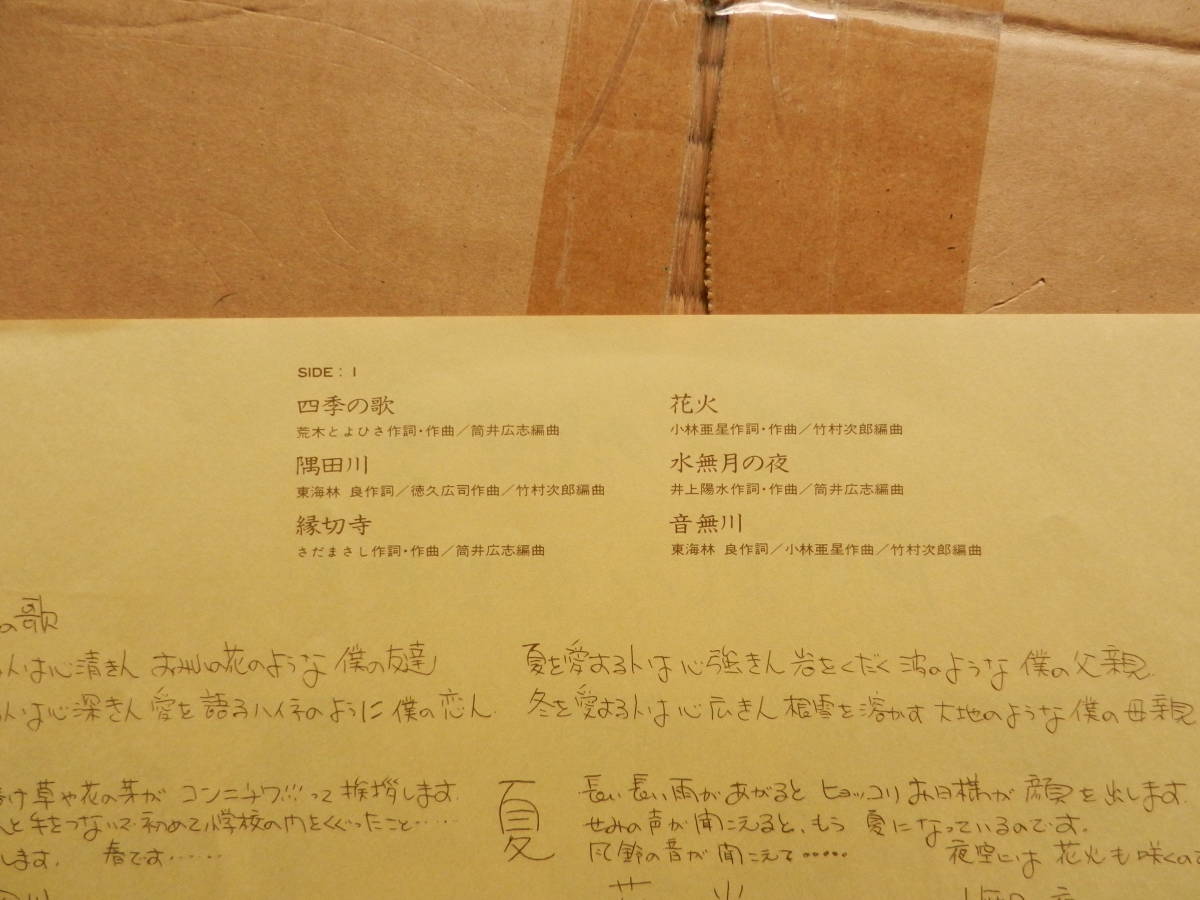 SIDE : 1
四季の歌
荒木とよひさ作詞・作曲／筒井広志編曲
隅田川
東海林 良作詞／徳久広司作曲／竹村次郎編曲
縁切寺
さだまさし作詞・作曲／筒井広志編曲
花火
小林亜星作詞・作曲／竹村次郎編曲
水無月の夜
井上陽水作詞・作曲／筒井広志編曲
音無川
東海林 良作詞／小林亜星作曲／竹村次郎編曲
の歌
る人は心清き人 すみれの花のような 僕の友達
夏を愛する人は 心強き人 岩をくだく 波のような 僕の父親
る人は心深き人 愛を語るハイネのように 僕の恋人
冬を愛する人は 心広き人 根雪を溶かす 大地のような 僕の母親
け 草や花の芽が コンニチワ!!!って 挨拶します
と手をつないで 初めて小学校の門をくぐったこと……
します。 春です……
夏
長い長い雨があがると ヒョッコリ お日様が 顔を出します
せみの声が聞こえると、もう 夏になっているのです。
風鈴の音が聞こえて…… 夜空には 花火も咲くので
花 火